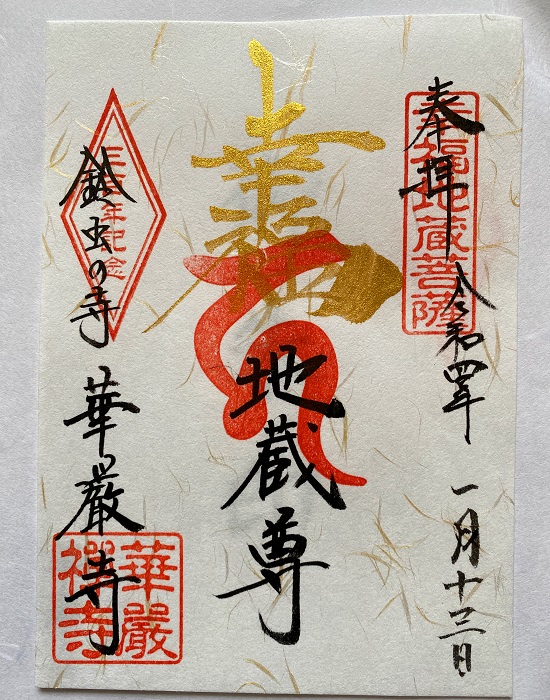 奉拝 令和四年 一月十三日
幸福地蔵菩薩
地蔵尊
鈴虫の寺 華厳寺
三百年記念
華嚴
禪寺